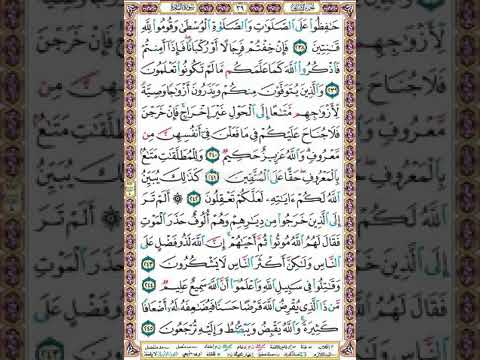 ٣٩
حَـٰفِظُوا۟ عَلَى ٱلصَّلَوَٰتِ وَٱلصَّلَوٰةِ ٱلْوُسْطَىٰ وَقُومُوا۟ لِلَّهِ
قَـٰنِتِينَ ٢٣٨ فَإِنْ خِفْتُمْ فَرِجَالًا أَوْ رُكْبَانًا فَإِذَآ أَمِنتُمْ
فَٱذْكُرُوا۟ ٱللَّهَ كَمَا عَلَّمَكُم مَّا لَمْ تَكُونُوا۟ تَعْلَمُونَ
٢٣٩ وَٱلَّذِينَ يُتَوَفَّوْنَ مِنكُمْ وَيَذَرُونَ أَزْوَٰجًا وَصِيَّةً
لِّأَزْوَٰجِهِم مَّتَـٰعًا إِلَى ٱلْحَوْلِ غَيْرَ إِخْرَاجٍ فَإِنْ خَرَجْنَ
فَلَا جُنَاحَ عَلَيْكُمْ فِى مَا فَعَلْنَ فِىٓ أَنفُسِهِنَّ مِن
مَّعْرُوفٍ وَٱللَّهُ عَزِيزٌ حَكِيمٌ ٢٤٠ وَلِلْمُطَلَّقَـٰتِ مَتَـٰعٌۢ
بِٱلْمَعْرُوفِ حَقًّا عَلَى ٱلْمُتَّقِينَ ٢٤١ كَذَٰلِكَ يُبَيِّنُ
ٱللَّهُ لَكُمْ ءَايَـٰتِهِۦ لَعَلَّكُمْ تَعْقِلُونَ ٢٤٢ ۞ أَلَمْ تَرَ
إِلَى ٱلَّذِينَ خَرَجُوا۟ مِن دِيَـٰرِهِمْ وَهُمْ أُلُوفٌ حَذَرَ ٱلْمَوْتِ
فَقَالَ لَهُمُ ٱللَّهُ مُوتُوا۟ ثُمَّ أَحْيَـٰهُمْ إِنَّ ٱللَّهَ لَذُو فَضْلٍ عَلَى
ٱلنَّاسِ وَلَـٰكِنَّ أَكْثَرَ ٱلنَّاسِ لَا يَشْكُرُونَ ٢٤٣
وَقَـٰتِلُوا۟ فِى سَبِيلِ ٱللَّهِ وَٱعْلَمُوٓا۟ أَنَّ ٱللَّهَ سَمِيعٌ عَلِيمٌ ٢٤٤
مَّن ذَا ٱلَّذِى يُقْرِضُ ٱللَّهَ قَرْضًا حَسَنًا فَيُضَـٰعِفَهُۥ لَهُۥٓ أَضْعَافًا
كَثِيرَةً وَٱللَّهُ يَقْبِضُ وَيَبْصُۜطُ وَإِلَيْهِ تُرْجَعُونَ ٢٤٥